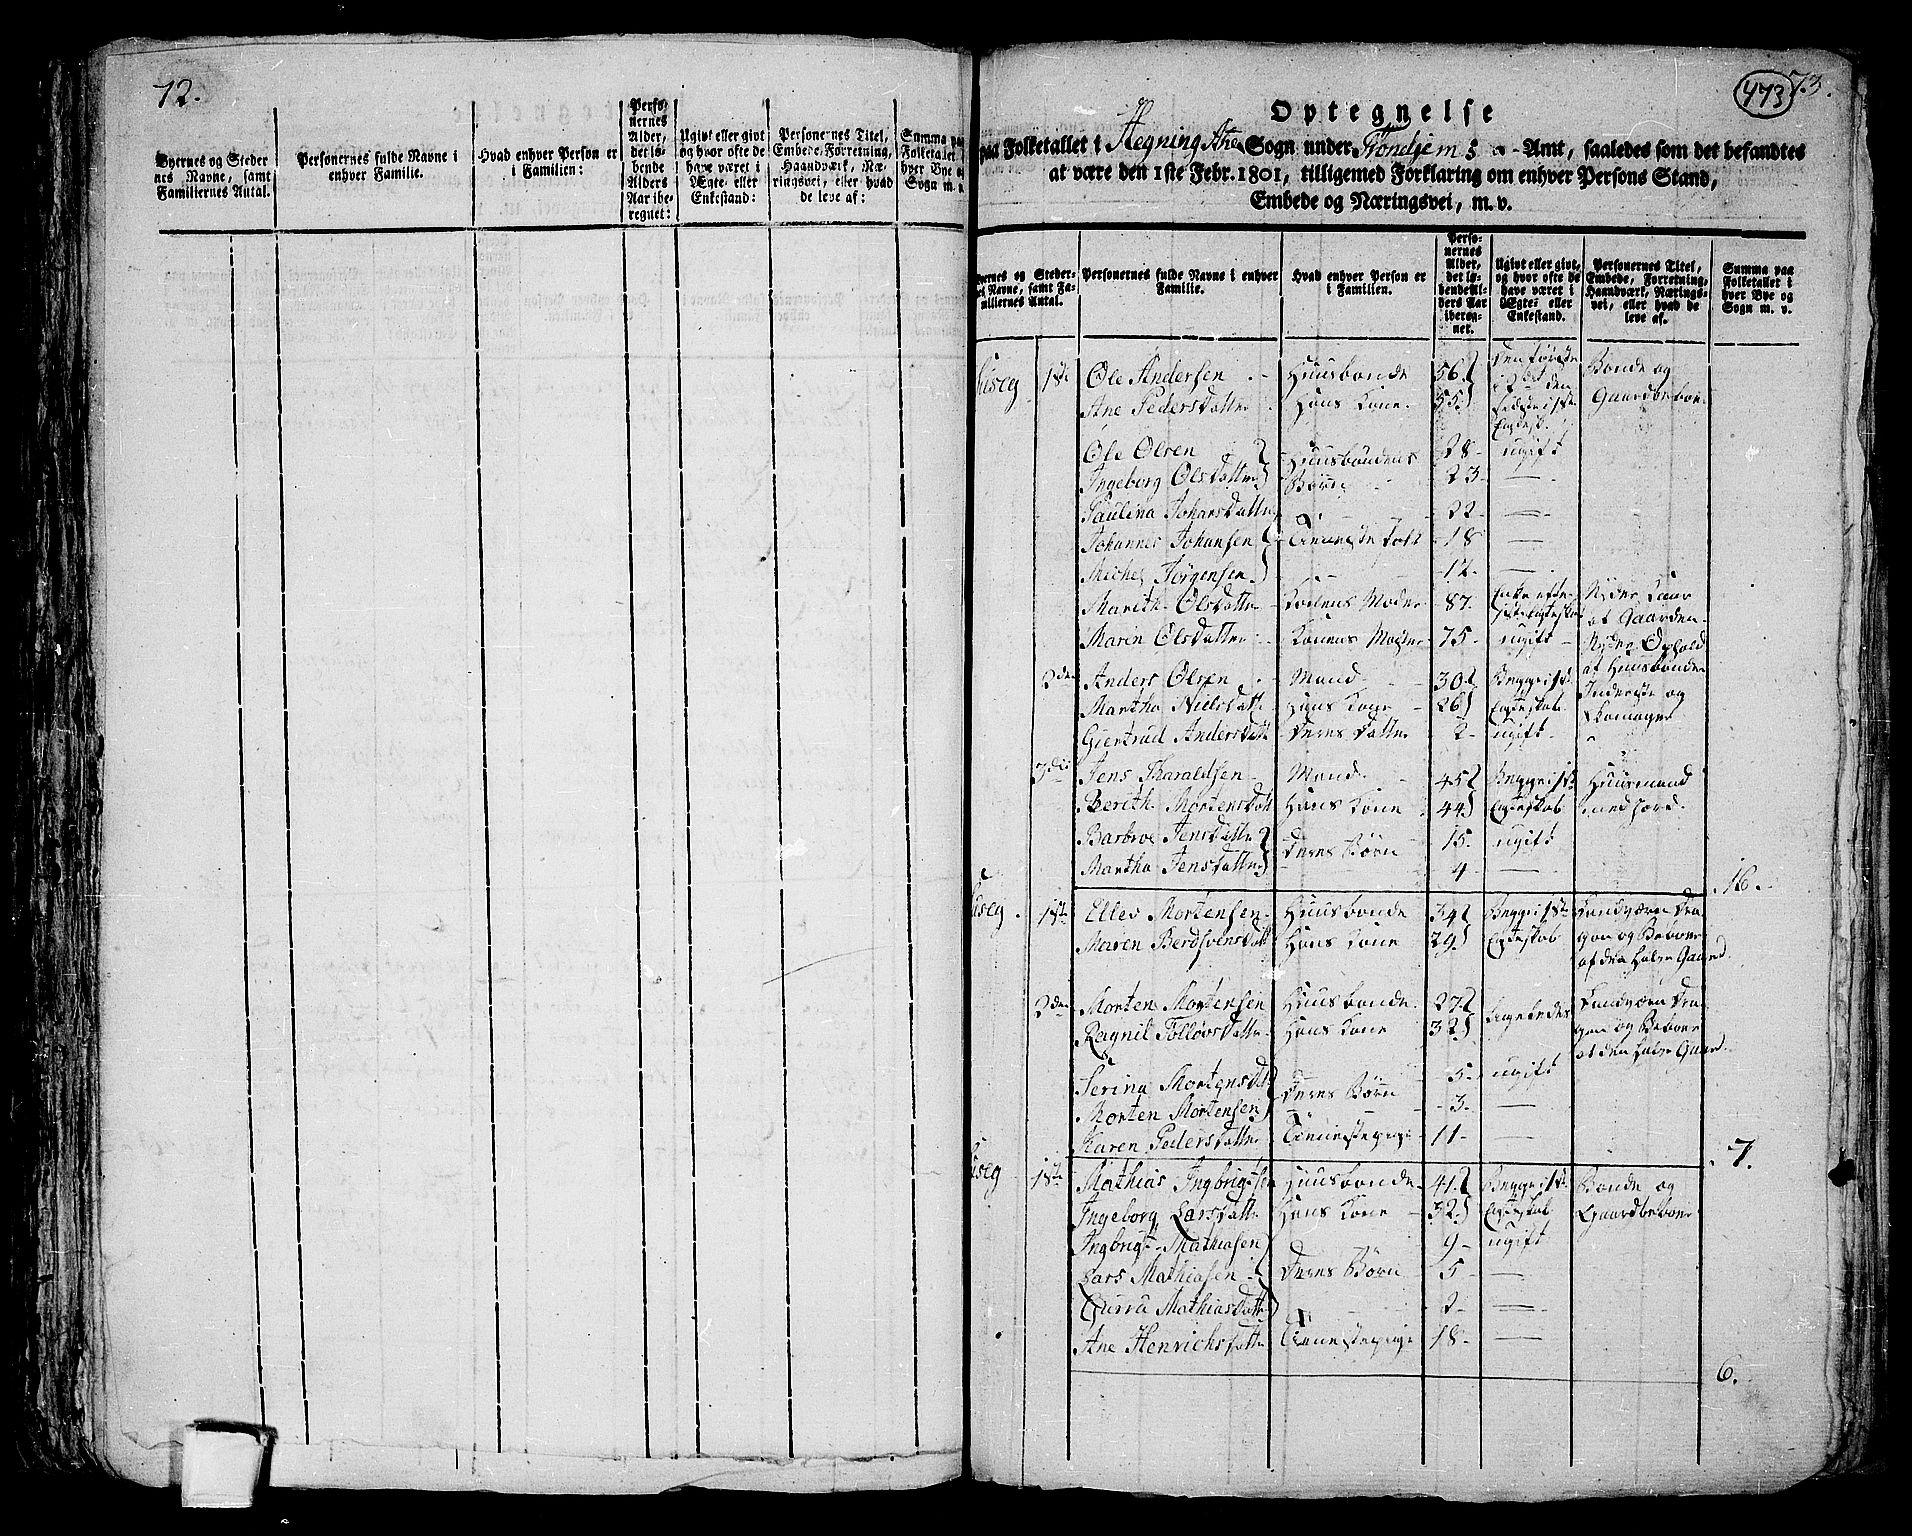 72.
Byernes og Steder
nes Navne, samt
Familiernes Antal.
Personernes fulde Navne i
enhver Familie.
Hvad enhver Person er
i Familien:
Perso-
nernes
Alder,
det lø-
bende
Alders
Aar ibe-
regnet:
Ugivt eller givt
og hvor ofte de
have været i
Ægte- eller
Enkestand:
Personernes Titel,
Embede, Forretning,
Haandværk, Næ-
ringsvei, eller hvad
de leve af:
Summa paa
Folketallet
hver Bye
Sogn m.
473
73.
Optegnelse
paa Folketallet i Hegning Sogn under Trondjems Amt, saaledes som det befandtes
at være den 1ste Febr. 1801, tilligemed Forklaring om enhver Persons Stand,
Embede og Næringsvei, m. v.
Byernes og Steder-
nes Navne, samt Fa-
miliernes Antal.
Personernes fulde Navne i enhver
Familie.
Hvad enhver Person er
i Familien.
Perso-
nernes
Alder,
det lø-
bende Al-
ders Aar
ibereg-
net.
Ugivt eller givt,
og hvor ofte de
have været i
Ægte- eller
Enkestand.
Personernes Titel,
Embede, Forretning,
Haandværk, Nærings-
vei, eller hvad de
leve af.
Summa paa
Folketallet i
hver Bye og
Sogn m. v.
1ste Ole Andersen Huusbonde 56 Bonde og
Ane Pedersdatter Hans Kone 55 Gaardbeboer
Ole Olsen Huusbondens 28 ugift
Ingeborg Olsdatter Børn 23 —
Paulina Johansdatter 22 —
Johannes Johansen Tienestefolk 18 —
Michel Jørgensen 12 —
Marith Olsdatter Konens Moder 87 Nyder Kaar
af Gaarden
Marin Olsdatter Konens Moster 75 ugift Nyder Ophold
af Huusbonden
2den Anders Olsen Mand 30 Begge i 1ste Inderste og
Martha Nielsdatter Hans Kone 26 Egteskab Skomager
Giertrud Andersdatter Deres Datter 2 ugift
3die Jens Tharaldsen Mand 45 Begge i 1ste Huusmand
Berith Mortensdatt Hans Kone 44 Egteskab med Jord
Barbroe Jensdatter Deres Børn 15 ugift
Martha Jensdatter 4 —
16.
1ste Ellev Mortensen Huusbonde 34 Begge i 1ste Landværn Dra
Maren Berdsvensdatt Hans Kone 29 Egteskab gon og Beboer
af den halve Gaard
2den Morten Mortensen Huusbonde 27 Ligeledes Landværn Dra
Ragnil Folløvsdatter Hans Kone 32 gon og Beboer
af den halve Gaard
Serina Mortensdat Deres Børn 5 ugift
Morten Mortensen 3 —
Karen Pedersdatter Tienestepige 11 —
7.
1ste Mathias Ingbrigtsen Huusbonde 41 Begge i 1ste Bonde og
Ingeborg Larsdatter Hans Kone 32 Egteskab Gaardbeboer
Ingbrigt Mathiasen 9 ugift
Lars Mathiasen Deres Børn 5 —
Gurru Mathiasdatt 2 —
Ane Henrichsdatter Tienestepige 18 —
6.